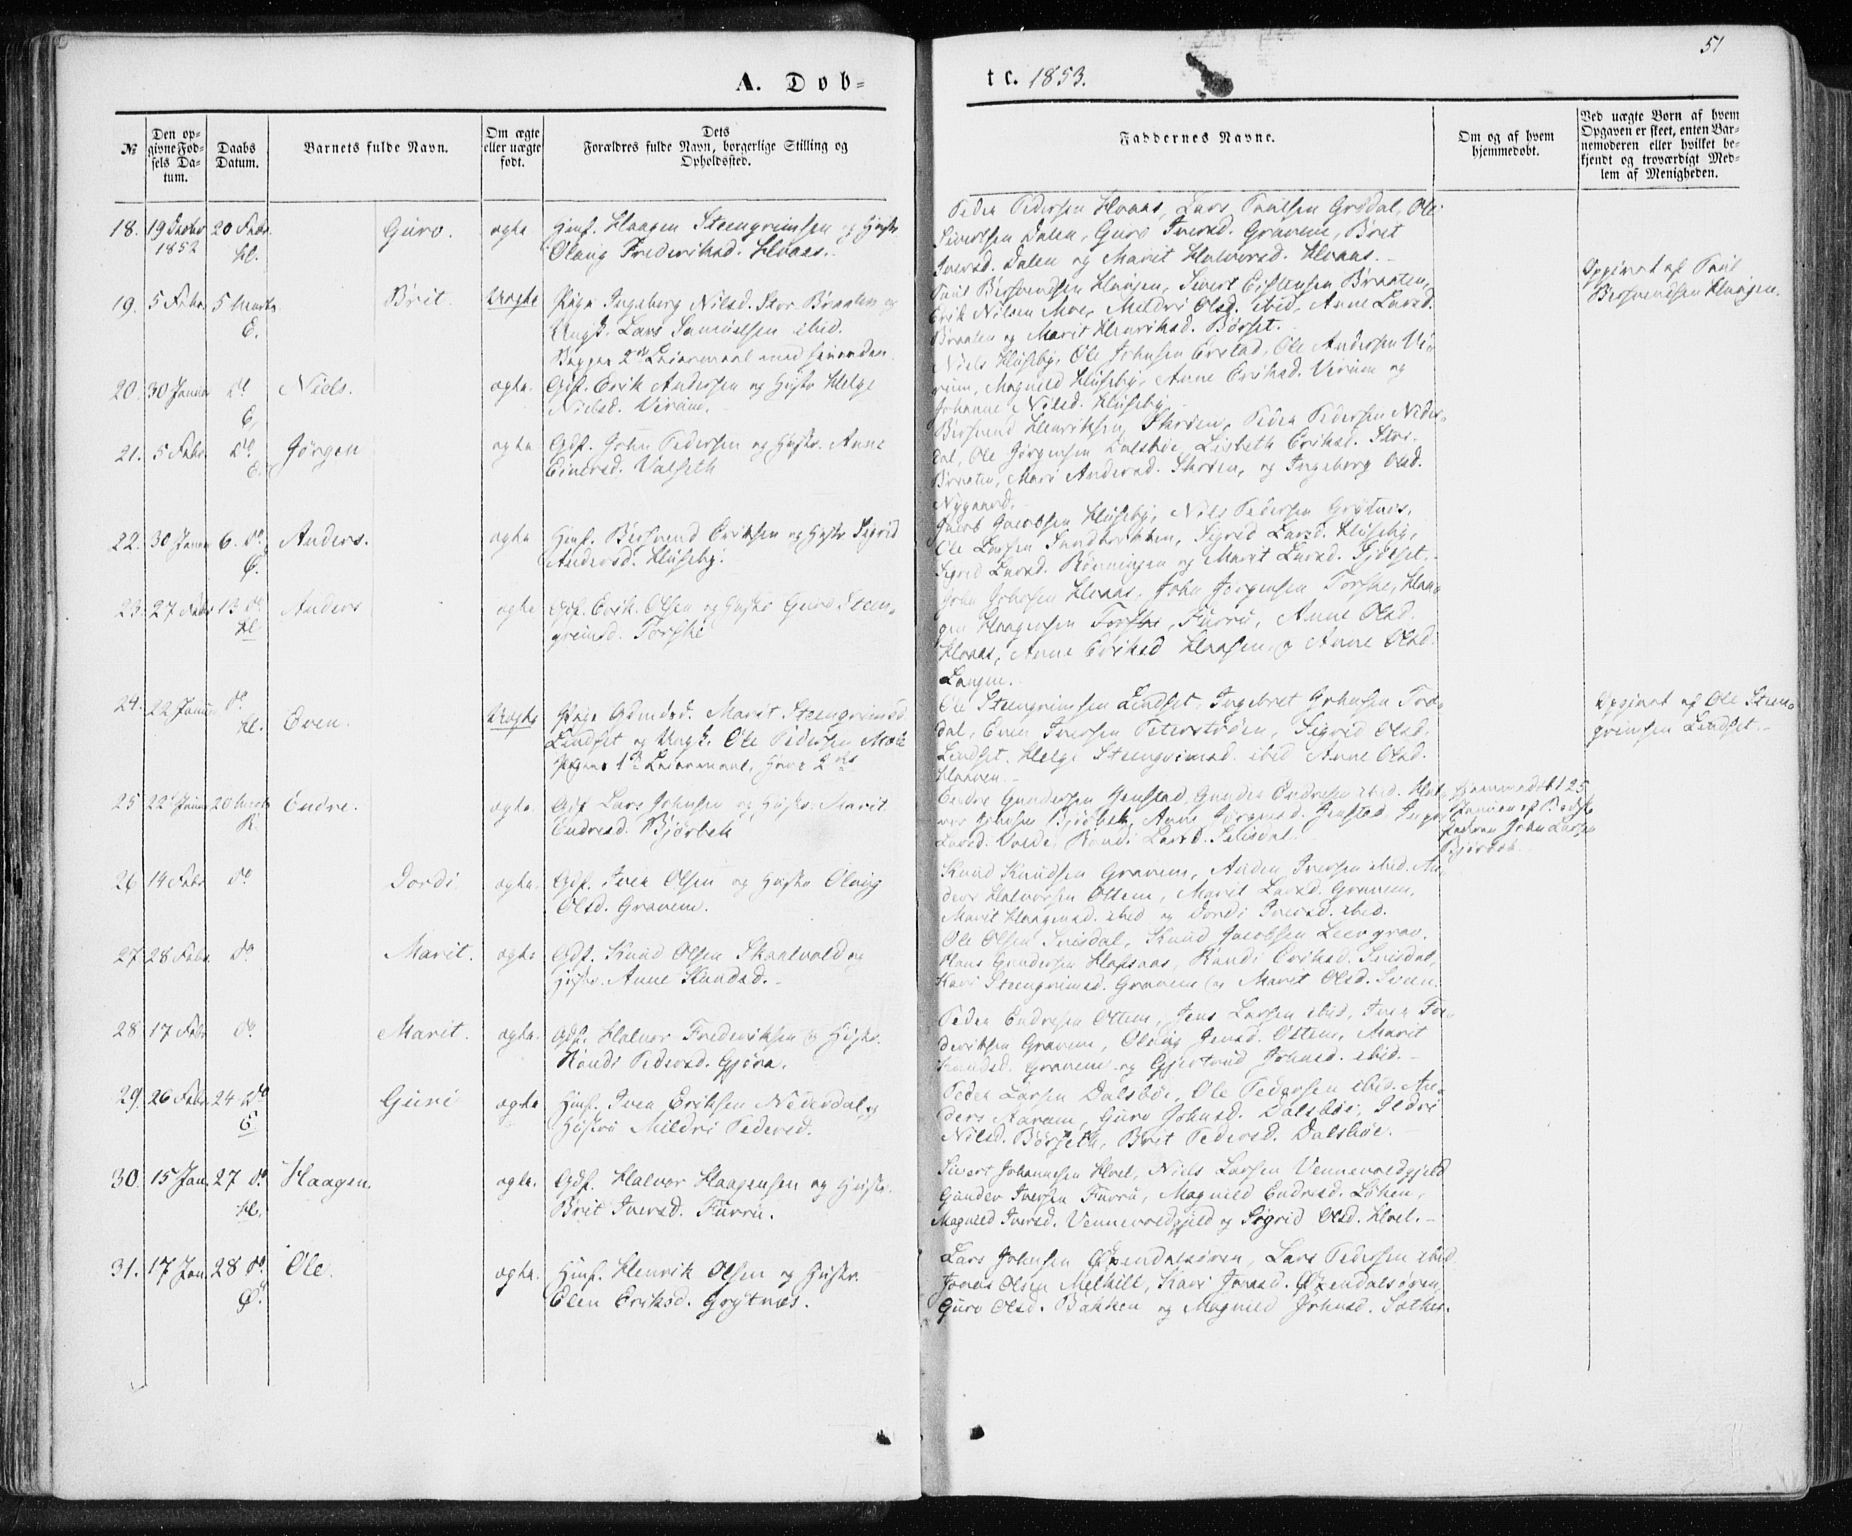 51
A. Døb-
te. 1853.
№
Den op-
givne Fød-
sels Da-
tum.
Daabs
Datum.
Barnets fulde Navn.
Om ægte
eller uægte
født.
Dets
Forældres fulde Navn, borgerlige Stilling og
Opholdssted.
Faddernes Navne.
Om og af hvem
hjemmedøbt.
Ved uægte Børn af hvem
Opgaven er skeet, enten Bar-
nemoderen eller hvilket be-
kjendt og troværdigt Med-
lem af Menigheden.
18. 1852 20 Febr. Guro. ægte Haagen Steengrimsen og Hustr
Olaug Frederiksd. Hvaas.
Peder Pedersen Hvaas, Lars Paulsen Grødal, Ole
Sivertsen Dalen, Guro Iversd. Gravem, Brit
Iversd. Dalen og Marit Halvorsd. Hvaas.
19. 5 Febr. 5 Marts Brit. Uægte Pige Ingeborg Nilsd. Stor Braaten og
Ungk. Lars Samuelsen ibid.
Begges 2det Leiermaal med hinanden.
Paul Bersvendsen Haagen, Sivert Estensen Braaten,
Erik Nilsen Moe, Mildri Olsd. ibid, Anne Larsd.
Braaten og Marit Henriksd. Børset.
Opgivet af Paul
Bersvendsen Haagen.
20. 30 Januar do Niels. ægte. Gdf. Erik Andersen og Hustr Helge
Nielsd. Virum.
Niels Huseby, Ole Johnsen Ørstad, Ole Andersen Vi-
rum, Magnild Huseby, Anne Eriksd. Virum og
Johanne Nilsd. Huseby
21. 5 Febr. do Jørgen ægte Gdf. John Pedersen og Hustr. Anne
Einersd. Valseth
Bersvend Henriksen Skrøen, Peder Pedersen Neder-
dal, Ole Jørgensen Dalsbøe, Lisbeth Eriksd. Stor-
Braaten, Mari Andersd. Skrøen, og Ingeborg Olsd.
Nygaard.
22. 30 Januar 6. do Ø. Anders. ægte Hmf. Bersvend Eriksen og Hustr Sigrid
Andersd. Huseby.
Jacob Jacobsen Huseby, Nils Pedersen Grytnes,
Ole Larsen Sandbrekken, Sigrid Larsd. Huseby,
Sigrid Larsd. Rønningen og Marit Larsd. Gjøset.
23. 27 Febr 13 do Hl Anders ægte Gdf. Erik Olsen og Hustr Guro Steen-
grimsd. Torske
John Johnsen Hvaas, John Jørgensen Torske, Haa-
gen Haagensen Furru, Anne Olsd.
Hvaas, Anne Eriksd Haasen, og Anne Olsd.
Langen.
24. 22 Januar do Hl. Even. Uægte Pige Marit Steengrimsd
Lindset og Ungk. Ole Pedersen
Pigens 1ste Leiermaal, Hans 2det
Ole Steengrimsen Lindset, Ingebret Johnsen Tor-
dal, Even Iversen Peterstøden, Sigrid Olsd.
Lindset. Helge Steengrimsd. ibid Anne Olsd.
Haaven.
Opgivet af Ole Steen-
grimsen Lindset.
25 22 Januar 20 Marts R. Endre. ægte. Gdf. Lars Johnsen og Hustr. Marit
Endresd. Bjørbek
Endre Gundersen Jenstad, Gunder Endresen ibid. Hal-
vor Johnsen Bjørbek, Anne Jørgensd. Jenstad,
Larsd. Volde, Randi Larsd.
Hjemmedøbt 25
Januar af Bedste-
faderen John Larsen
Bjørbek.
26 14 Febr do Jordi ægte. Gdf. Iver Olsen og Hustr Olaug
Olsd. Gravem.
Knud Knudsen Gravem, Anders Iversen ibid. An-
ders Halvorsen Ottem, Marit Larsd. Gravem,
Marit Haagensd. ibid og Jordi Iversd. ibid.
27 28 Febr. do Marit. ægte Gdf. Knud Olsen Skaalvold og
Hustr. Anne Knudsd.
Ole Olsen Svisdal, Knud Jacobsen Leergrav.
Hans Gundersen Hafsaas, Randi Eriksd. Svisdal,
Kari Steengrimsd. Gravem og Marit Olsd. Svøen.
28 17 Febr do Marit. ægte. Gdf. Halvor Frederiksen og Hustr.
Randi Pedersd. Gjøra.
Peder Endresen Ottem, Jens Larsen ibid, Iver Fre-
deriksen Gravem, Olaug Jensd. Ottem, Marit
Knudsd. Gravem og Gjertrud Johnsd. ibid.
29. 26 Febr. 24 do Guri ægte Hmf. Iver Eriksen Nederdal og
Hustro Mildri Pedersd.
Peder Larsen Dalsbøe, Ole Pedersen ibid. An-
ders Aarem, Guro Johnsd. Dalsbøe, Ildri
Nilsd. Børseth, Brit Pedersd. Dalsbøe.
30. 15 Jan. 27 do Hl. Haagen. ægte. Gdf. Halvor Haagensen og Hustr.
Brit Iversd. Furru.
Sivert Johannesen Hoel, Niels Larsen Vennevoldgjeld
Gunder Iversen Furru, Magnild Endresd. Løken,
Magnild Iversd. Vennevoldgjeld og Sigrid Olsd. Hoel.
31. 17 Jan. 28 do. Ø. Ole. ægte. Hmf. Henrik Olsen og Hustr.
Elen Eriksd. Grytnæs.
Lars Johnsen Øxendalsøren, Lars Pedersen ibid
Jonas Olsen Melkild, Kari Jonasd. Øxendalsøren,
Guro Olsd. Bakken og Magnild Johnsd. Sæther.